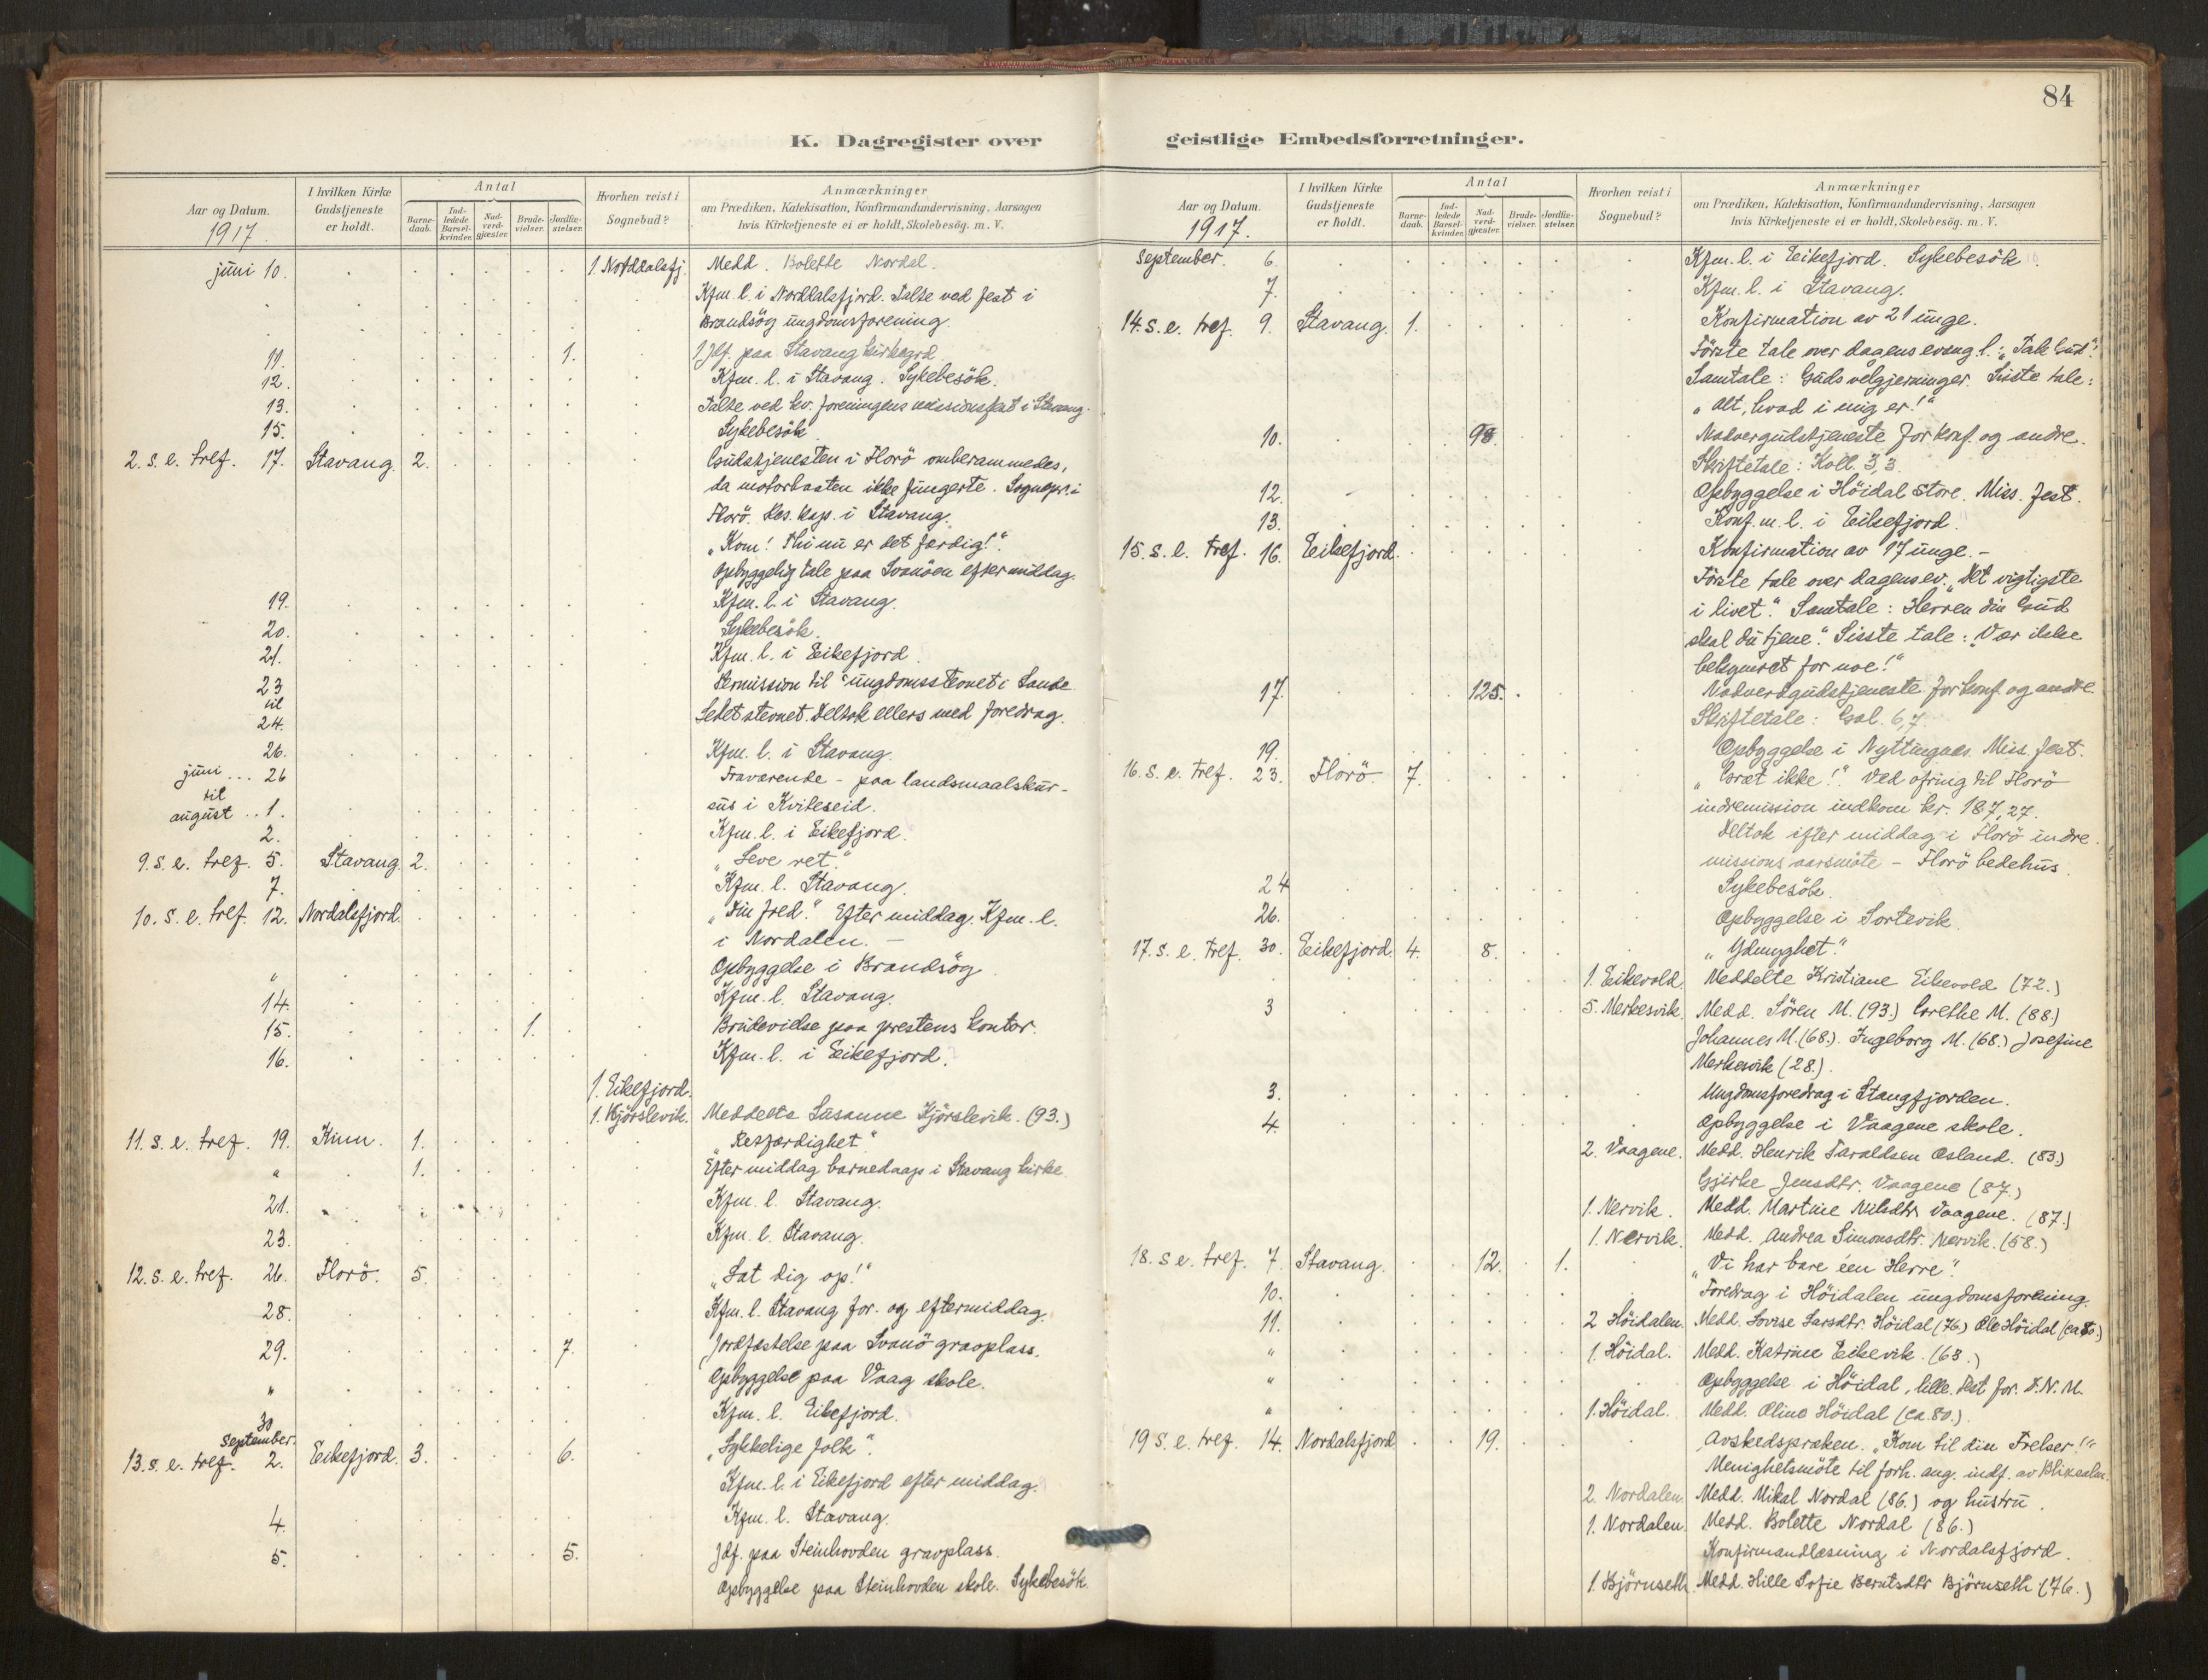 84
K. Dagregister over
Aar og Datum.
1917.
I hvilken Kirke Gudstjeneste er holdt.
Antal
Barne-daab.
Ind-ledede Barsel-kvinder.
Nad-verd-gjæster.
Brude-vielser.
Jordfæ-stelser.
Hvorhen reist i Sognebud?
Anmærkninger
om Prædiken, Katekisation, Konfirmandundervisning, Aarsagen
hvis Kirketjeneste ei er holdt, Skolebesög. m. V.
juni 10. 1 Norddalsfj. Medd. Bolette Nordal.
Kfm. l. i Norddalsfjord. Talte ved fest i
Brandsög ungdomsforening.
11. 1. 1 Jdf. paa Stavang kirkegrd.
12. Kfm. l. i Stavang. Sykebesök.
13. Talte ved kv. foreningens missionsfest i Stavang.
15. Sykebesök
2. s. e. tref. 17. Stavang. 2. Gudstjenesten i Florö omberammedes,
da motorbaaten ikke fungerte. Sognepr. i
Florö. Res. kap. i Stavang.
„Kom! Thi nu er det færdig!“
Opbyggelig tale paa Svanöen eftermiddag.
19. Kfm. l. i Stavang.
20. Sykebesök.
21. Kfm. l. i Eikefjord.
23 Permission til ungdomsstevnet i Sande.
til
24. Ledet stevnet. Deltok ellers med foredrag.
26. Kfm. l. i Stavang.
juni ... 26 Fraværende - paa landsmaalskur-
til
august .. 1. sus i Kviteseid.
2. Kfm. l. i Eikefjord.
9. s. e. tref. 5. Stavang. 2. „Leve ret.“
7. Kfm. l. Stavang.
10. s. e. tref. 12. Nordalsfjord. „Din fred.“ Efter middag. Kfm. l.
i Nordalen. -
„ Opbyggelse i Brandsög.
14. Kfm. l. Stavang.
15. 1. Brudevielse paa prestens kontor.
16. Kfm. l. i Eikefjord.
1. Eikefjord.
1. Kjörslevik. Meddelte Susanne Kjörslevik. (93.)
11. s. e. tref. 19. Kinn. 1. „Retfærdighet.“
„ 1. Efter middag barnedaap i Stavang kirke.
21. Kfm. l. Stavang.
23. Kfm. l. Stavang.
12. s. e. tref. 26. Florö. 5. „Lat dig op!“
28. Kfm. l. Stavang for. og eftermiddag.
29. 7. Jordfæstelse paa Svanö gravplass.
„ Opbyggelse paa Vaag skole.
30 Kfm. l. Eikefjord.
September.
13. s. e. tref. 2. Eikefjord. 3. 6. „Lykkelige folk“.
Kfm. l. i Eikefjord efter middag.
4. Kfm. l. Stavang.
5. 5. Jdf. paa Steinhovden gravplass.
Opbyggelse paa Steinhovden skole. Sykebesök.
geistlige Embedsforretninger.
Aar og Datum.
1917.
I hvilken Kirke Gudstjeneste er holdt.
Antal
Barne-daab.
Ind-ledede Barsel-kvinder.
Nad-verd-gjæster.
Brude-vielser.
Jordfæ-stelser.
Hvorhen reist i Sognebud?
Anmærkninger
om Prædiken, Katekisation, Konfirmandundervisning, Aarsagen
hvis Kirketjeneste ei er holdt, Skolebesög. m. V.
September. 6. Kfm. l. i Eikefjord. Sykebesök.
7. Kfm. l. i Stavang.
14. s. e. tref. 9. Stavang. 1. Konfirmation av 21 unge.
Förste tale over dagens evang l.: „Tak Gud“.
Samtale: Guds velgjerninger. Sisste tale:
„Alt, hvad i mig er!“
10. 98. Nadvergudstjeneste for konf. og andre.
Skriftetale: Koll. 3,3.
12. Opbyggelse i Höidal store. Miss. fest.
13. Konf. m. l. i Eikefjord.
15. s. e. tref. 16. Eikefjord. Konfirmation av 17 unge. -
Förste tale over dagens ev. „Det vigtigste
i livet.“ Samtale: Herren din Gud
skal du tjene.“ Sisste tale: „Vær ikke
bekymret for noe!“
17. 125. Nadverdgudstjeneste for konf og andre.
Skriftetale: Gal. 6,7.
19. Opbyggelse i Nyttingnes. Miss. fest.
16. s. e. tref. 23. Florö. 7. „Græt ikke!“ Ved ofring til Florö
indremission indkom kr. 187,27.
Deltok efter middag i Florö indre
missions aarsmöte - Florö bedehus.
24 Sykebesök.
26. Opbyggelse i Sortevik.
17. s. e. tref. 30. Eikefjord. 4. 8. „Ydmyghet.“
1. Eikevold. Meddelte Kristiane Eikevold (72.)
3 5. Merkesvik. Medd. Sören M. (93.) Grethe M. (88.)
Johannes M. (68.). Ingeborg M. (68.) Josefine
Merkesvik (28.).
3. Ungdomsforedrag i Stangfjorden.
4. Opbyggelse i Vaagene skole.
2. Vaagene. Medd. Henrik Taraldsen Osland. (83.)
Gjirke Jensdtr. Vaagene (87.)
1. Nervik. Medd. Martine Nilsdtr Vaagene. (87.)
1. Nervik. Medd. Andrea Simonsdtr. Nervik. (58.)
18. s e. tref. 7. Stavang. 12. 1. „Vi har bare éen Herre“.
10. Foredrag i Höidalen ungdomsforening.
11. 2 Höidalen. Medd. Lovise Larsdtr. Höidal (76.) Ole Höidal (ca 80.)
„ 1. Höidal. Medd. Katrine Eikevik. (63.)
„ Opbyggelse i Höidal, lille. Fest for. D. N. M.
„ 1. Höidal. Medd. Oline Höidal (ca. 80.).
19 s. e. tref. 14. Nordalsfjord. 19. Avskedspræken. „Kom til din Frelser!“
Menighetsmöte til forh. ang. indf. av
2. Nordalen. Medd. Mikal Nordal (86.) og hustru.
1. Nordalen. Medd. Bolette Nordal (86.)
Konfirmandlæsning i Nordalsfjord.
1. Björnseth. Medd. Hille Sofie Berntsdtr Björnseth (76.)